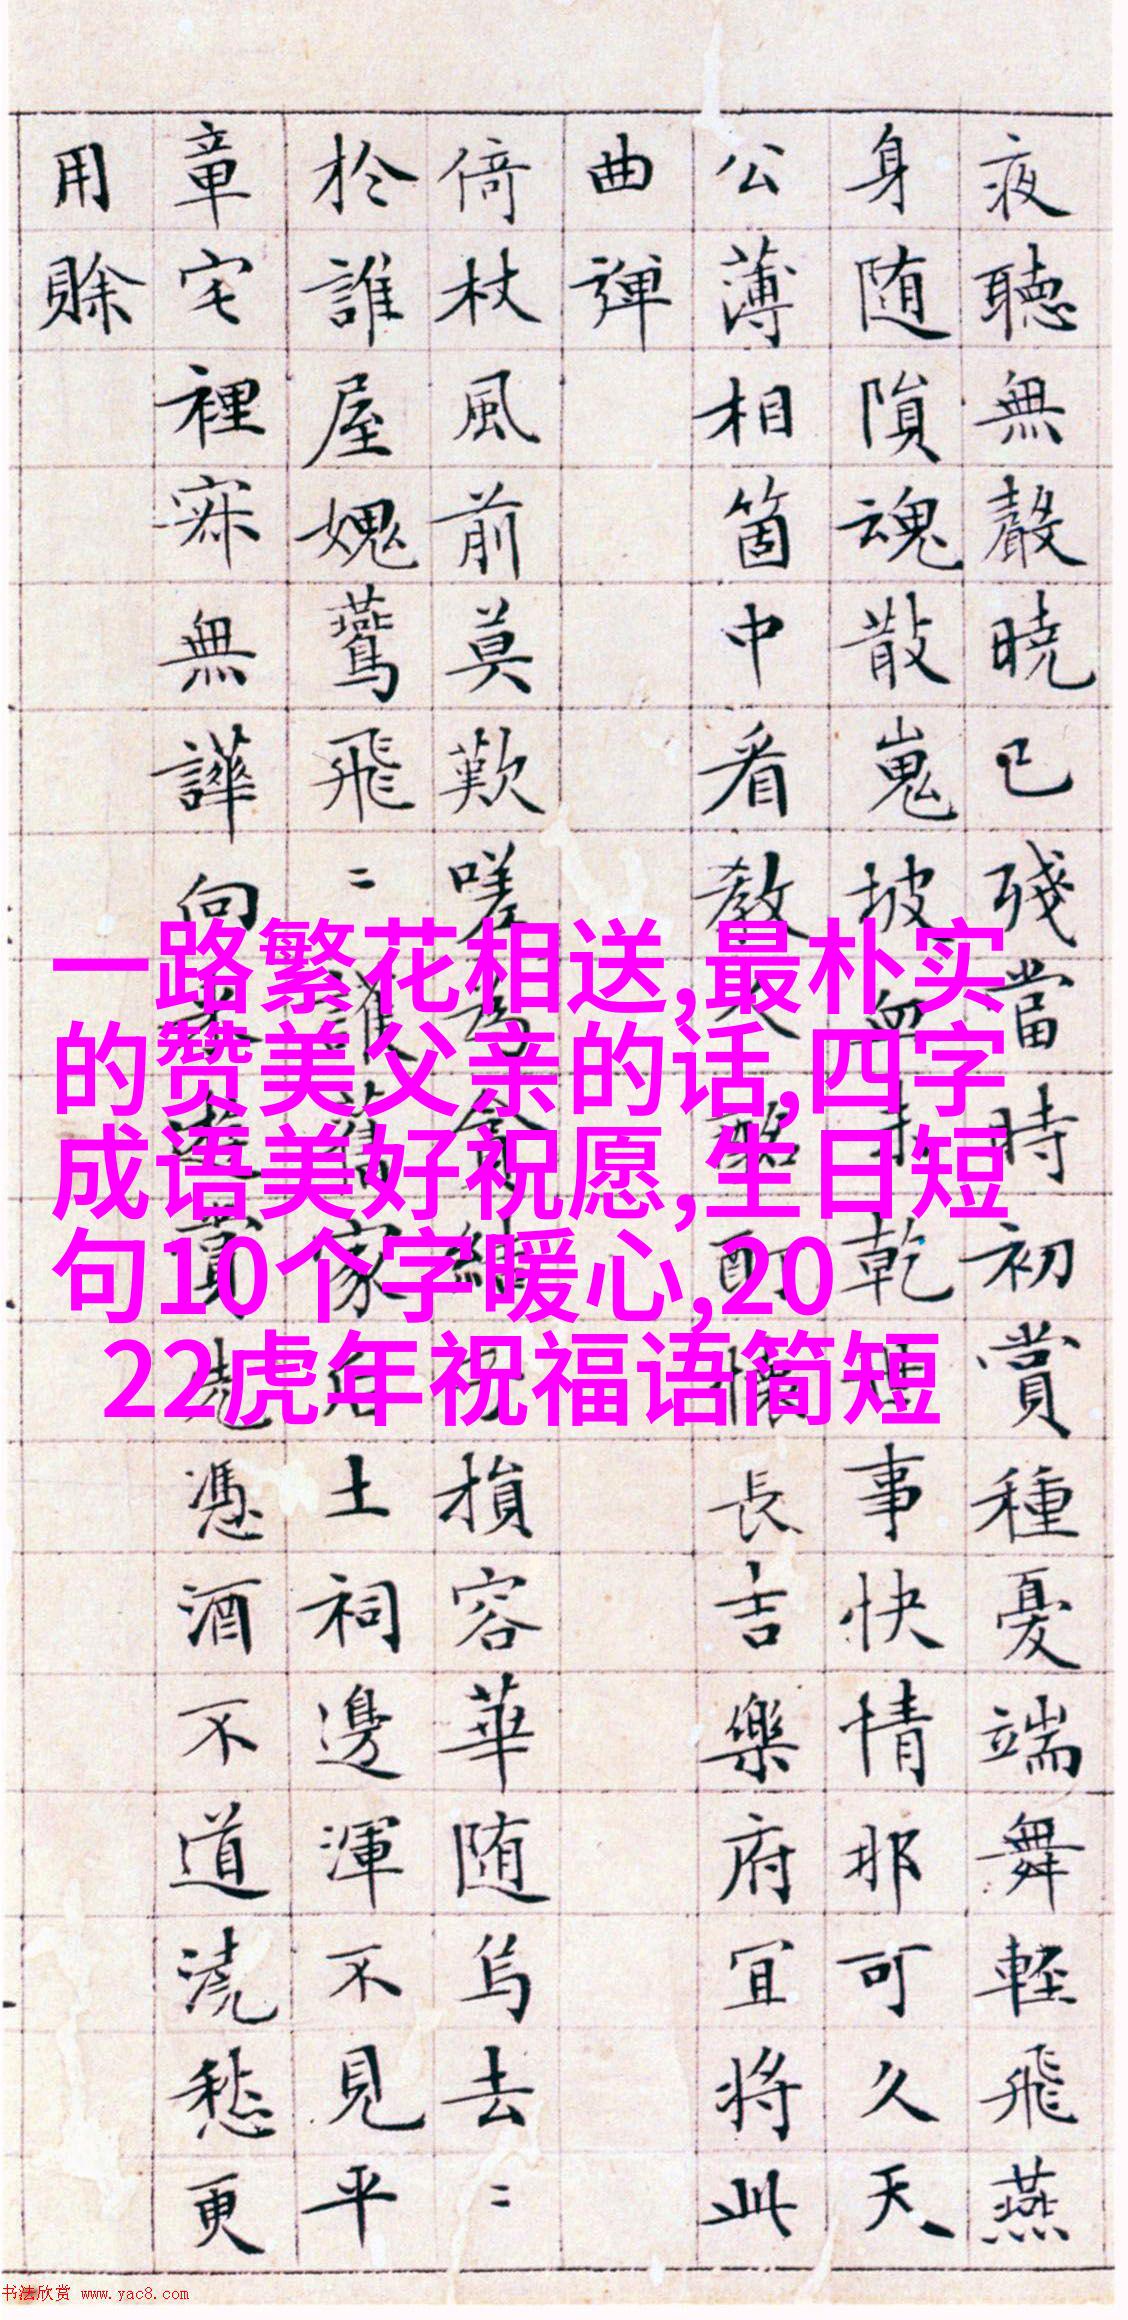 夜聽無聲曉已殘當時初賞種憂端舞輕飛燕
身随隕魂散嵬坡血乾事快情那可久天
公薄相箇中看教人酩酊懷長吉樂府宜將此
曲彈
倚杖風前莫歎嗟為細損容華随烏去二
於誰屋媿鷰飛二誰舊家后土祠邊渾不見平
章宅裡寂無譁向賞憑酒不道澆愁更
用賒
一路繁花相送,最朴实
的赞美父亲的话,四字
成语美好祝愿,生日短
句10个字暖心,20
22虎年祝福语简短
书法欣赏 www.yac8.com